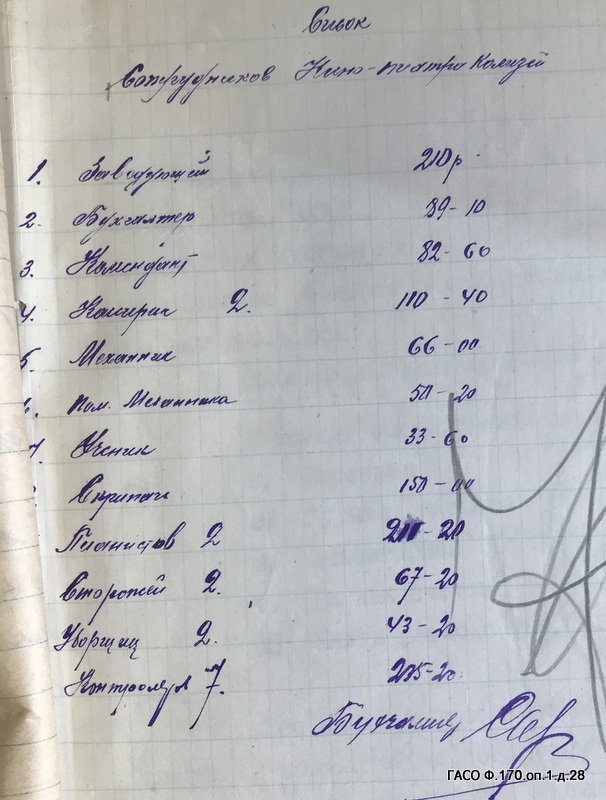 Список
Сотрудников Кино-театра Колизей
1. Заведующий 210 р.
2. Бухгалтер 39-10
3. Комендант 82-60
4. Кассирш 2. 110-40
5. Механник 66-00
6. Пом. Механника 50-20
7 Ученик 33-60
Скрипач 150-00
Пианистов 2 210-20
Сторожей 2. 67-20
Уборщиц 2. 43-20
Контролера 7. 205-20
Бухгалтер
ГАСО Ф.170.оп.1.д.28